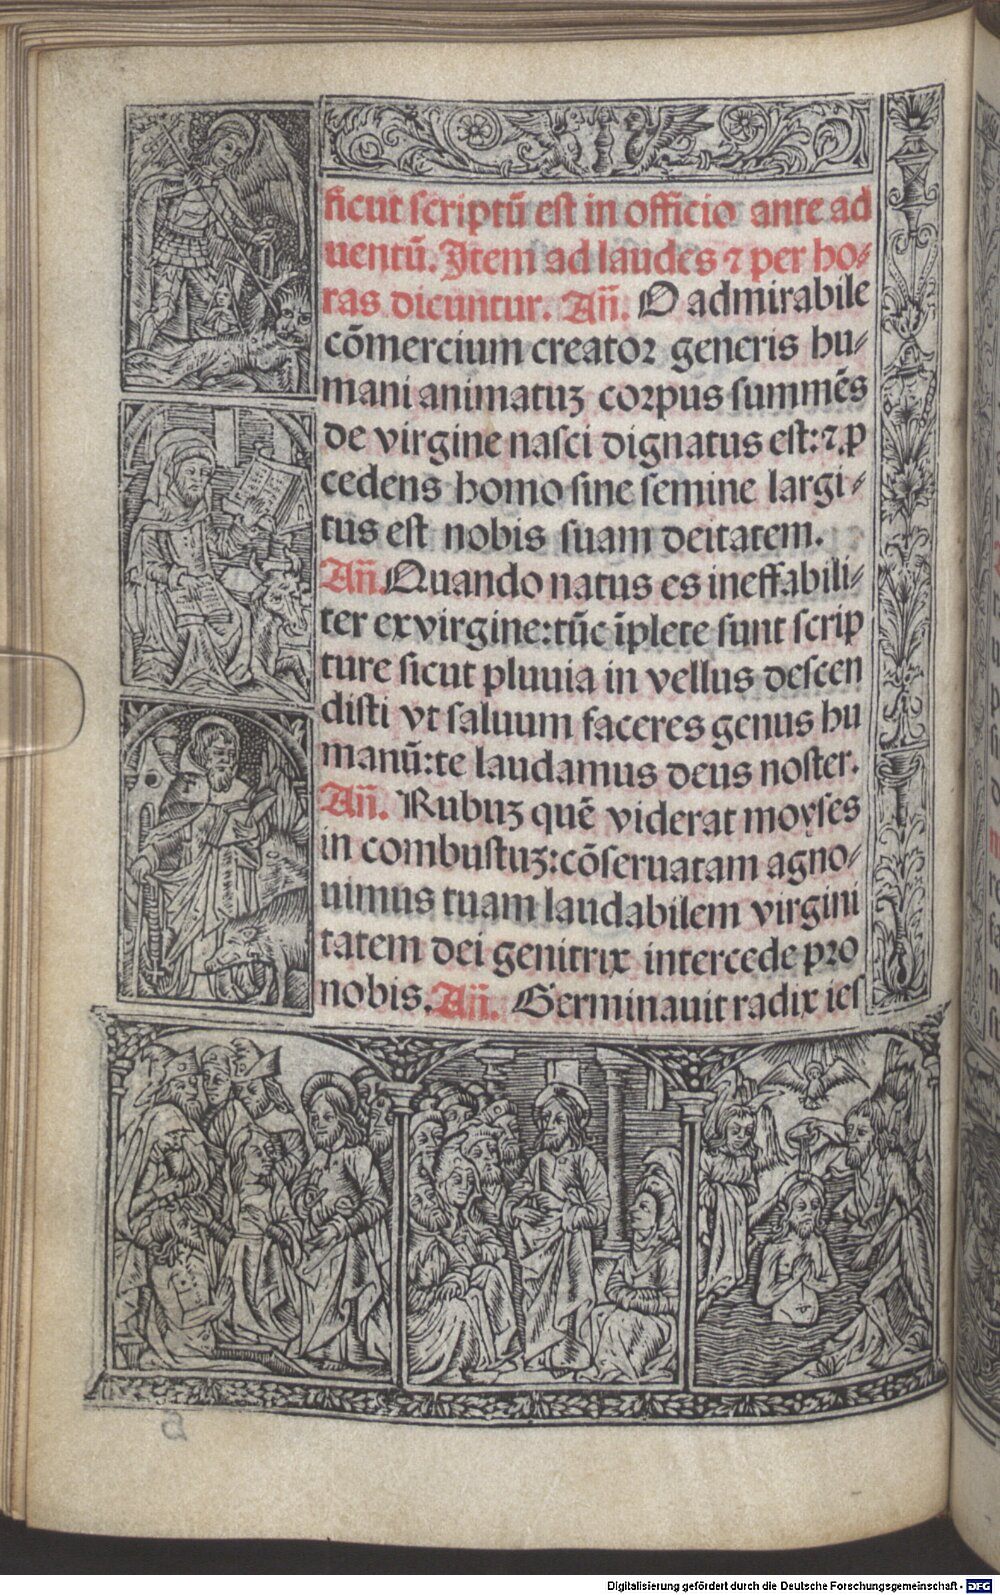 sicut scriptū est in officio ante ad
uentū. Item ad laudes ⁊ per ho⸗
ras dicuntur. Añ. O admirabile
cōmercium creator generis hu⸗
mani animatuʒ corpus summēs
de virgine nasci dignatus est: ⁊ ꝓ
cedens homo sine semine largi⸗
tus est nobis suam deitatem.
Añ. Quando natus es ineffabili⸗
ter ex virgine: tūc īplete sunt scrip
ture sicut pluuia in vellus descen
disti vt saluum faceres genus hu
manū: te laudamus deus noster.
Añ. Rubuʒ quē viderat moyses
in combustuʒ: cōseruatam agno⸗
uimus tuam laudabilem virgini
tatem dei genitrix intercede pro
nobis. Añ. Germinauit radix ies
Digitalisierung gefördert durch die Deutsche Forschungsgemeinschaft - DFG